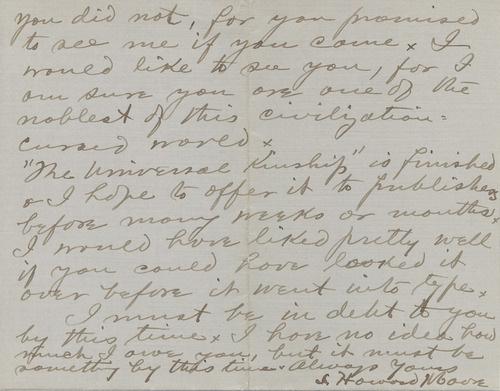 you did not, for you promised
to see me if you came x I
would like to see you, for I
am sure you are one of the
noblest of this civilization=
cursed world x
"The Universal Kinship" is finished
& I hope to offer it to publishers
before many weeks or months x
I would have liked pretty well
if you could have looked it
over before it went into type x
I must be in debt to you
by this time x I have no idea how
much I owe you, but it must be
something by this time x Always Yours
J. Howard Moore